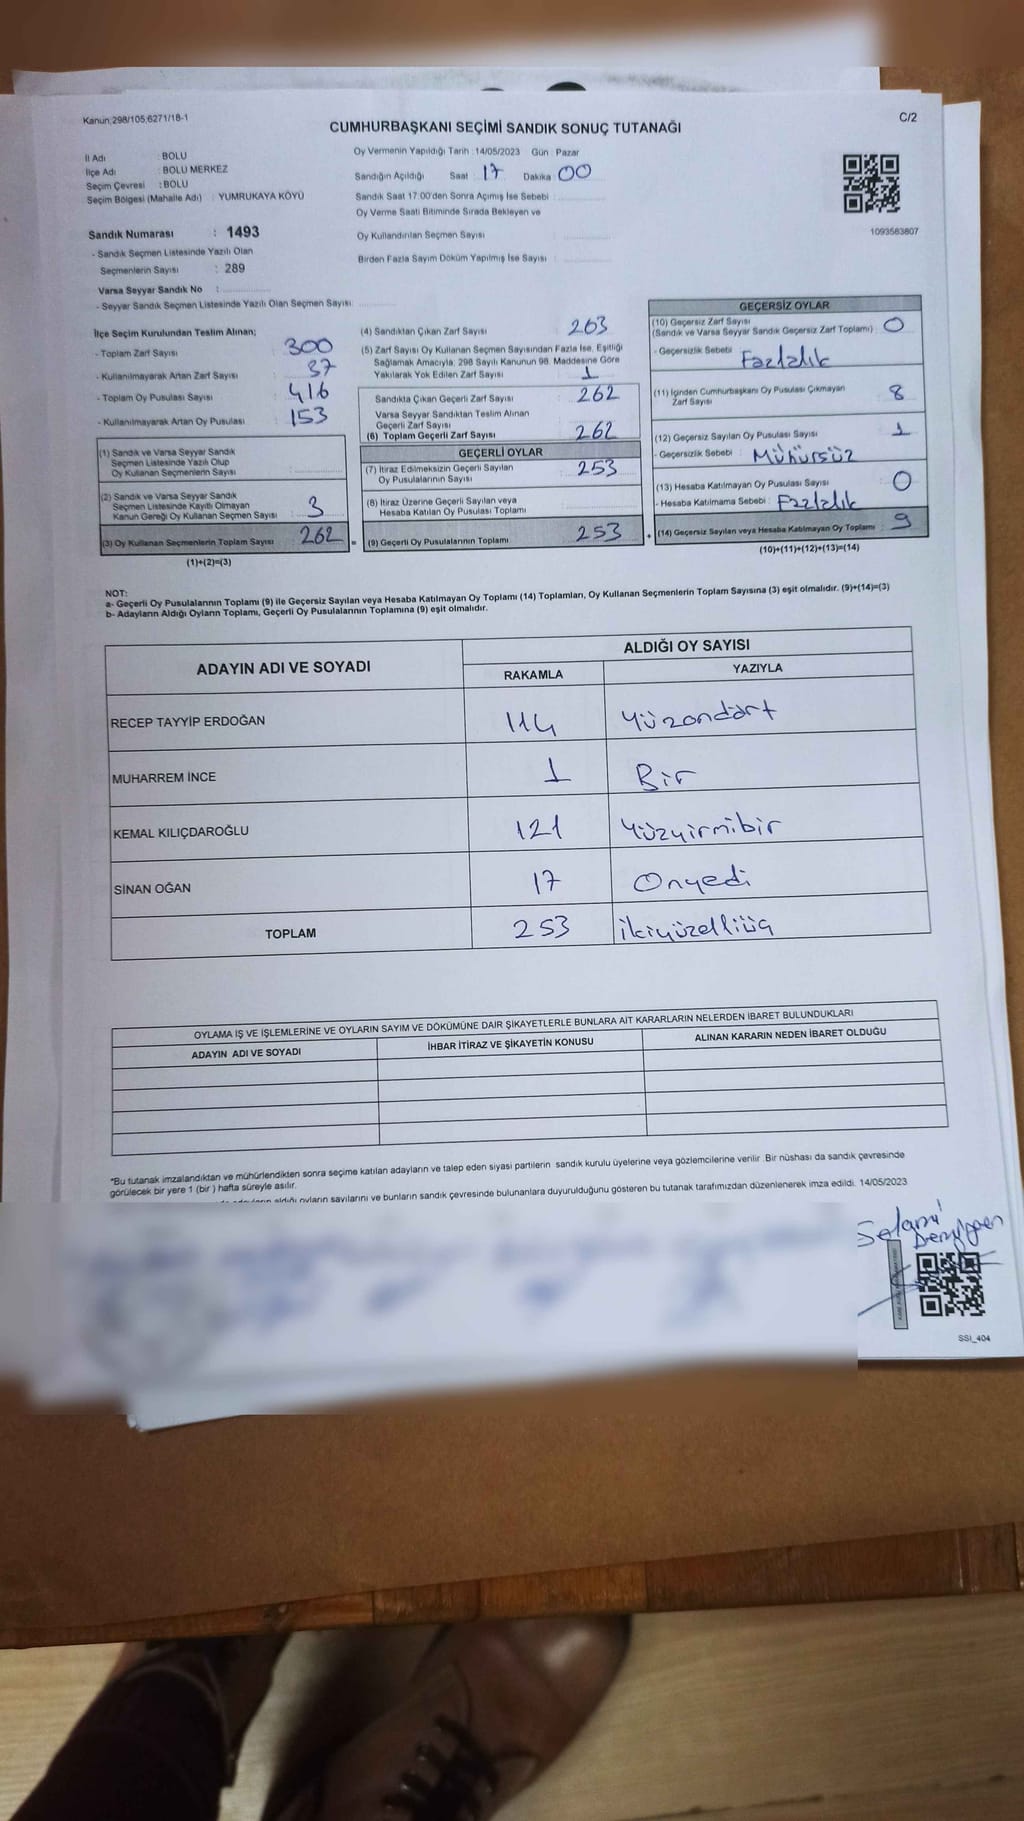 Kanun;298/105;6271/18-1
C/2
CUMHURBAŞKANI SEÇİMİ SANDIK SONUÇ TUTANAĞI
İl Adı : BOLU
İlçe Adı : BOLU MERKEZ
Seçim Çevresi : BOLU
Seçim Bölgesi (Mahalle Adı) : YUMRUKAYA KÖYÜ
Sandık Numarası : 1493
- Sandık Seçmen Listesinde Yazılı Olan
Seçmenlerin Sayısı : 289
Varsa Seyyar Sandık No :
- Seyyar Sandık Seçmen Listesinde Yazılı Olan Seçmen Sayısı
Oy Vermenin Yapıldığı Tarih :14/05/2023 Gün : Pazar
Sandığın Açıldığı Saat : 17 Dakika : 00
Sandık Saat 17:00'den Sonra Açımış İse Sebebi :
Oy Verme Saati Bitiminde Sırada Bekleyen ve
Oy Kullandırılan Seçmen Sayısı
Birden Fazla Sayım Döküm Yapılmış İse Sayısı :
1093563807
İlçe Seçim Kurulundan Teslim Alınan;
- Toplam Zarf Sayısı : 300
- Kullanılmayarak Artan Zarf Sayısı : 37
- Toplam Oy Pusulası Sayısı : 416
- Kullanılmayarak Artan Oy Pusulası : 153
(1) Sandık ve Varsa Seyyar Sandık
Seçmen Listesinde Yazılı Olup
Oy Kullanan Seçmenlerin Sayısı :
(2) Sandık ve Varsa Seyyar Sandık
Seçmen Listesinde Kayıtlı Olmayan
Kanun Gereği Oy Kullanan Seçmen Sayısı : 3
(3) Oy Kullanan Seçmenlerin Toplam Sayısı : 262
(1)+(2)=(3)
(4) Sandıktan Çıkan Zarf Sayısı : 263
(5) Zarf Sayısı Oy Kullanan Seçmen Sayısından Fazla İse, Eşitliği
Sağlamak Amacıyla, 298 Sayılı Kanunun 98. Maddesine Göre
Yakılarak Yok Edilen Zarf Sayısı : 1
Sandıkta Çıkan Geçerli Zarf Sayısı : 262
Varsa Seyyar Sandıktan Teslim Alınan
Geçerli Zarf Sayısı
(6) Toplam Geçerli Zarf Sayısı : 262
GEÇERLİ OYLAR
(7) İtiraz Edilmeksizin Geçerli Sayılan
Oy Pusulalarının Sayısı : 253
(8) İtiraz Üzerine Geçerli Sayılan veya
Hesaba Katılan Oy Pusulası Toplamı :
= (9) Geçerli Oy Pusulalarının Toplamı : 253
GEÇERSİZ OYLAR
(10) Geçersiz Zarf Sayısı
(Sandık ve Varsa Seyyar Sandık Geçersiz Zarf Toplamı) : 0
- Geçersizlik Sebebi : Fazlalık
(11) İçinden Cumhurbaşkanı Oy Pusulası Çıkmayan
Zarf Sayısı : 8
(12) Geçersiz Sayılan Oy Pusulası Sayısı : 1
- Geçersizlik Sebebi : Mühürsüz
(13) Hesaba Katılmayan Oy Pusulası Sayısı : 0
- Hesaba Katılmama Sebebi : Fazlalık
+ (14) Geçersiz Sayılan veya Hesaba Katılmayan Oy Toplamı : 9
(10)+(11)+(12)+(13)=(14)
NOT:
a- Geçerli Oy Pusulalarının Toplamı (9) ile Geçersiz Sayılan veya Hesaba Katılmayan Oy Toplamı (14) Toplamları, Oy Kullanan Seçmenlerin Toplam Sayısına (3) eşit olmalıdır. (9)+(14)=(3)
b- Adayların Aldığı Oyların Toplamı, Geçerli Oy Pusulalarının Toplamına (9) eşit olmalıdır.
ADAYIN ADI VE SOYADI
ALDIĞI OY SAYISI
RAKAMLA YAZIYLA
RECEP TAYYİP ERDOĞAN 114 Yüzondört
MUHARREM İNCE 1 Bir
KEMAL KILIÇDAROĞLU 121 Yüzyirmibir
SİNAN OĞAN 17 Onyedi
TOPLAM 253 İkiyüzelliüç
OYLAMA İŞ VE İŞLEMLERİNE VE OYLARIN SAYIM VE DÖKÜMÜNE DAİR ŞİKAYETLERLE BUNLARA AİT KARARLARIN NELERDEN İBARET BULUNDUKLARI
ADAYIN ADI VE SOYADI İHBAR İTİRAZ VE ŞİKAYETİN KONUSU ALINAN KARARIN NEDEN İBARET OLDUĞU
*Bu tutanak imzalandıktan ve mühürlendikten sonra seçime katılan adayların ve talep eden siyasi partilerin sandık kurulu üyelerine veya gözlemcilerine verilir .Bir nüshası da sandık çevresinde
görülecek bir yere 1 (bir ) hafta süreyle asılır.
aldığı oyların sayılarını ve bunların sandık çevresinde bulunanlara duyurulduğunu gösteren bu tutanak tarafımızdan düzenlenerek imza edildi. 14/05/2023
Selami
SSI_404